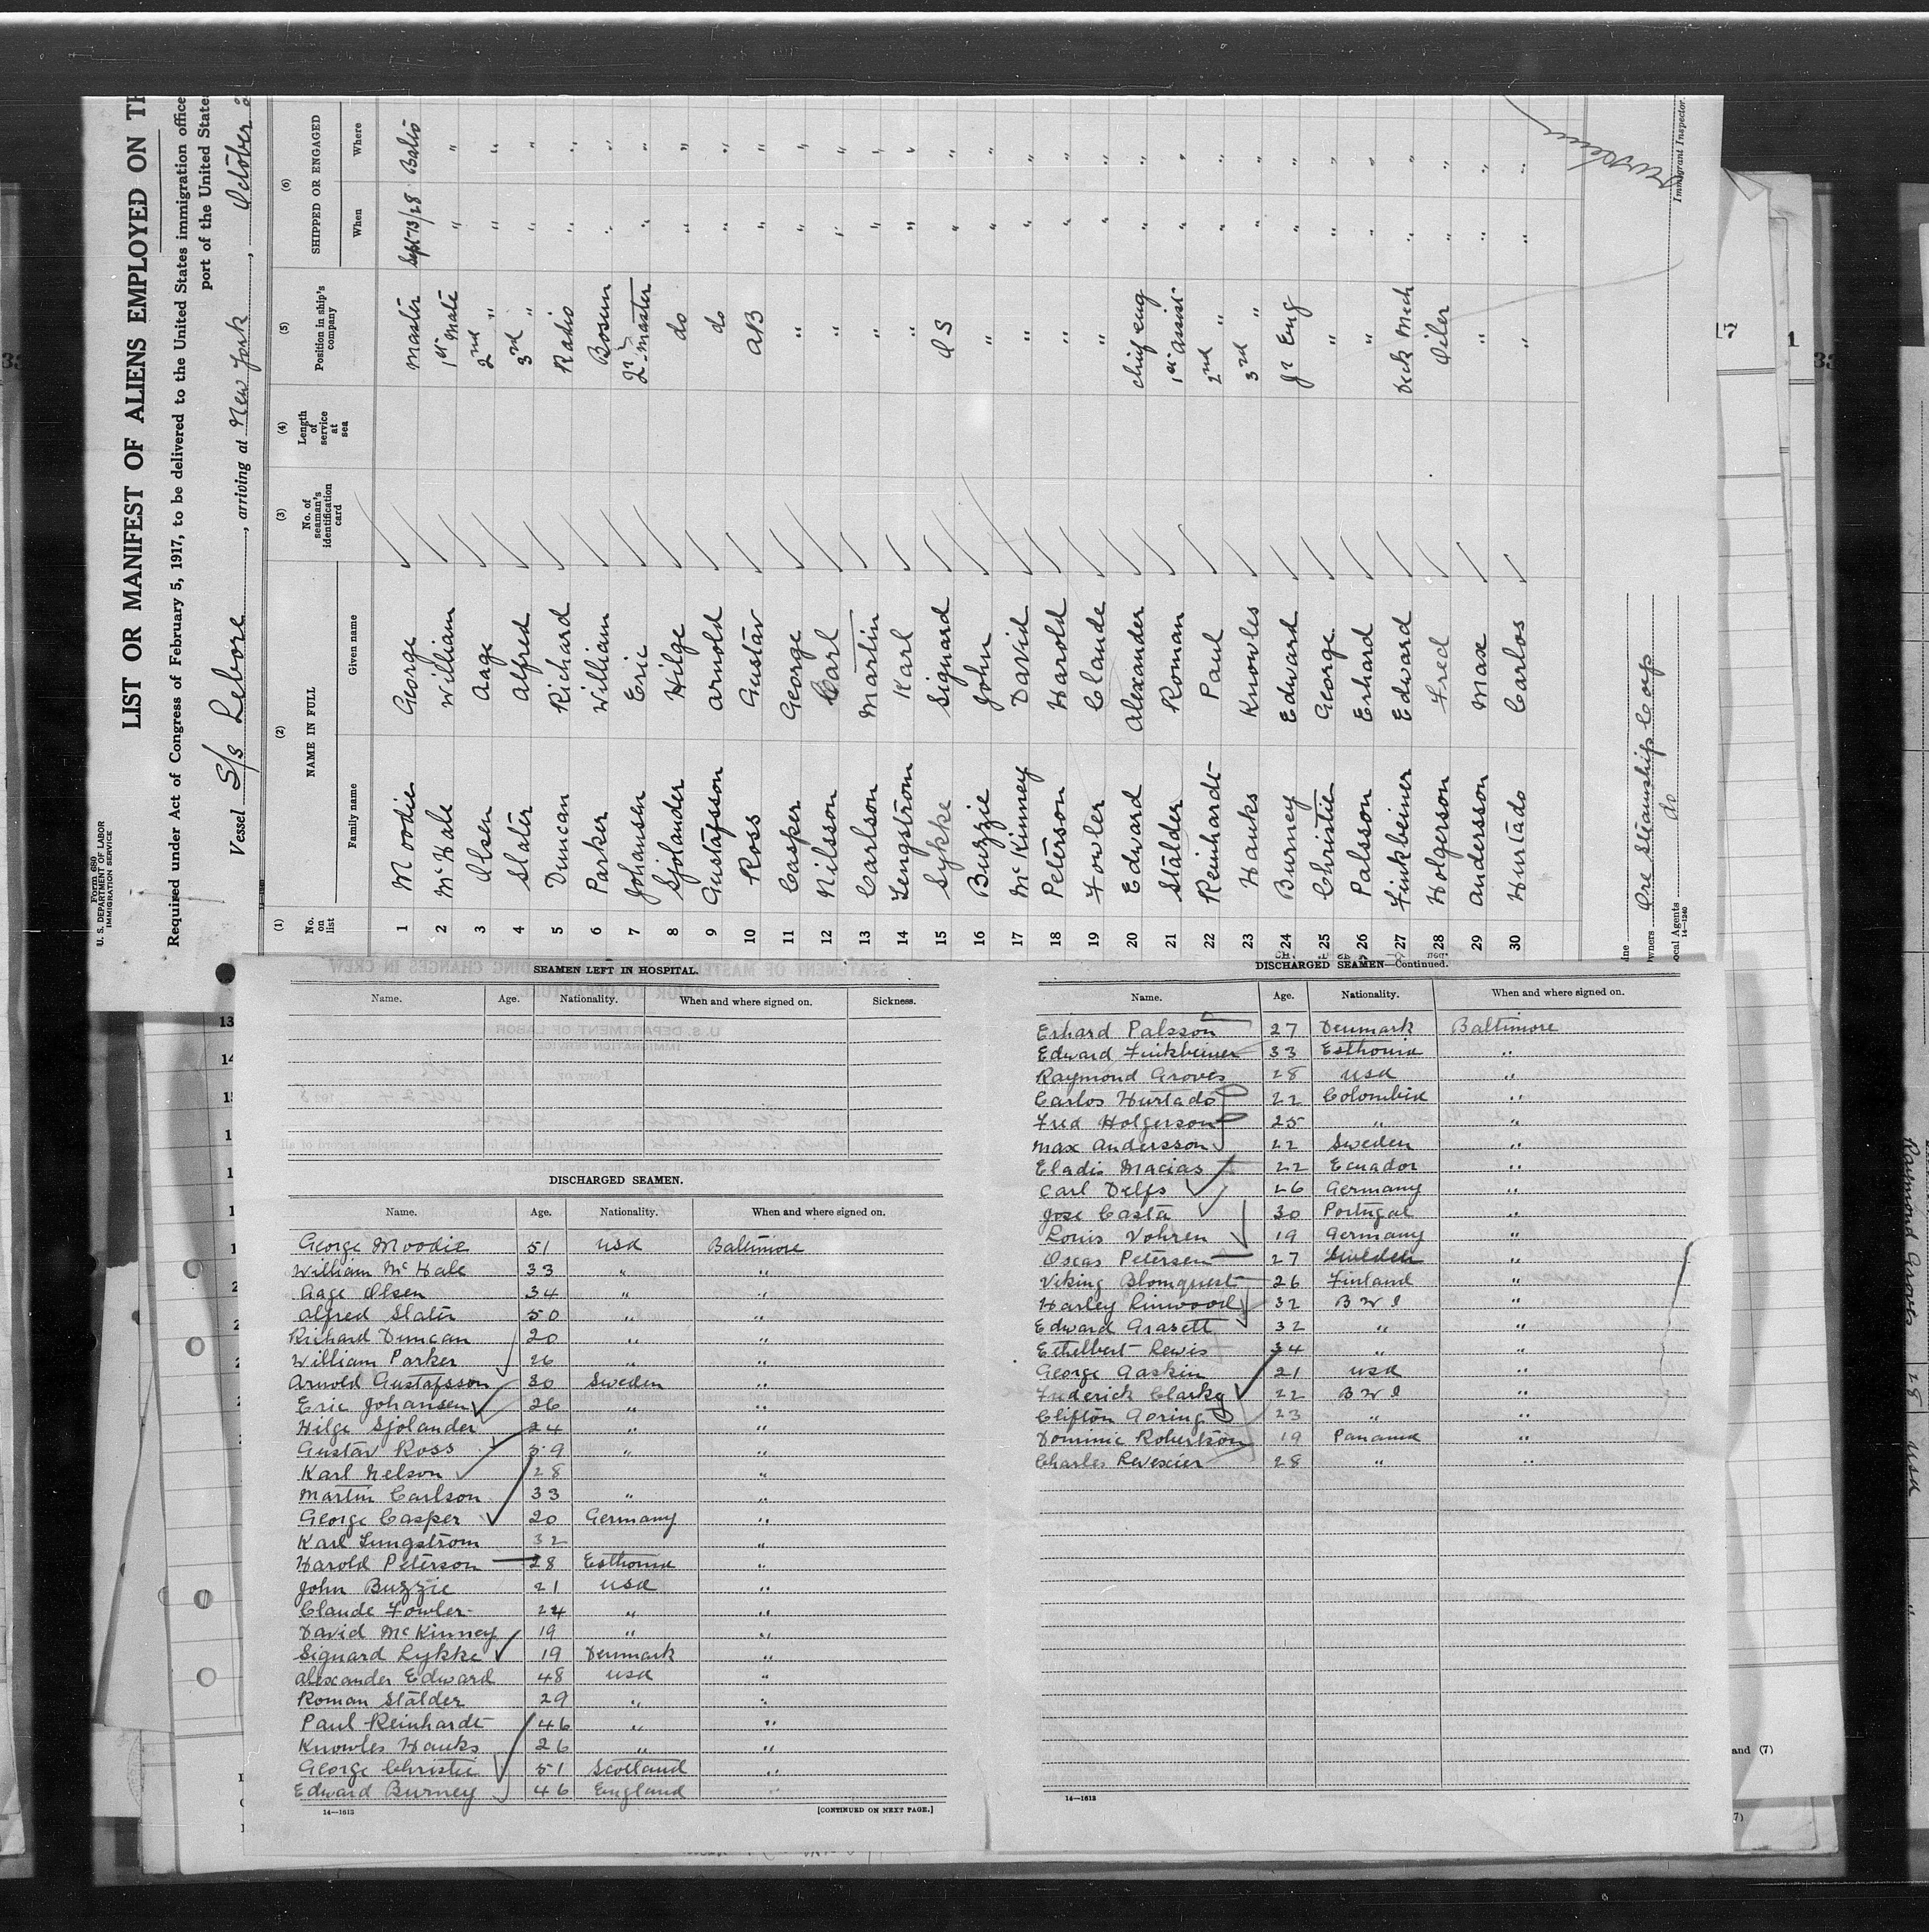 Form 680
U. S. DEPARTMENT OF LABOR
IMMIGRATION SERVICE
LIST OR MANIFEST OF ALIENS EMPLOYED ON TH
Required under Act of Congress of February 5, 1917, to be delivered to the United States immigration office
port of the United States
Vessel S/s Lebore, arriving at New York, October
(1) (2) (3) (4) (5) (6)
No. on list NAME IN FULL No. of seaman's identification card Length of service at sea Position in ship's company SHIPPED OR ENGAGED
Family name Given name When Where
1 Moodie George Master Sept 13/28 Balto
2 McHale William 1st Mate " "
3 Olsen Aage 2nd " " "
4 Slater Alfred 3rd " " "
5 Duncan Richard Radio " "
6 Parker William Bosun " "
7 Johansen Eric " "
8 Sjolander Hilge do " "
9 Gustafsson Arnold do " "
10 Ross Gustav AB " "
11 Casper George " " "
12 Nilsson Carl " " "
13 Carlson Martin " " "
14 Lengstrom Karl " " "
15 Sykke Signard OS " "
16 Buzzie John " " "
17 McKinney David " " "
18 Peterson Harold " " "
19 Fowler Claude " " "
20 Edward Alexander Chief Eng " "
21 Stalder Roman 1st Assist " "
22 Reinhardt Paul 2nd " " "
23 Hanks Knowles 3rd " " "
24 Burney Edward Jr Eng " "
25 Christie George " " "
26 Palsson Erhard " " "
27 Finkbeiner Edward Deck Mech " "
28 Holgerson Fred Oiler " "
29 Andersson Max " " "
30 Hurtado Carlos " " "
Ore Steamship Corp
do
ocal Agents
14-1240
Immigrant Inspector.
SEAMEN LEFT IN HOSPITAL.
Name. Age. Nationality. When and where signed on. Sickness.
DISCHARGED SEAMEN.
Name. Age. Nationality. When and where signed on.
George Moodie 51 USA Baltimore
William McHale 33 " "
Aage Olsen 34 " "
Alfred Slater 50 " "
Richard Duncan 20 " "
William Parker 26 " "
Arnold Gustafsson 30 Sweden "
Eric Johansen 26 " "
Hilge Sjolander 24 " "
Gustav Ross 59 " "
Karl Nelson 28 "
Martin Carlson 33 " "
George Casper 20 Germany "
Karl Lungstrom 32 "
Harold Peterson 28 Esthonia "
John Buzzie 21 USA "
Claude Fowler 24 " "
David McKinney 19 " "
Signard Lykke 19 Denmark "
Alexander Edward 48 USA "
Roman Stalder 29 " "
Paul Reinhardt 46 " "
Knowles Hanks 26 " "
George Christie 51 Scotland "
Edward Burney 46 England "
14-1613 [CONTINUED ON NEXT PAGE.]
DISCHARGED SEAMEN—Continued.
Name. Age. Nationality. When and where signed on.
Erhard Palsson 27 Denmark Baltimore
Edward Finkbeiner 33 Esthonia "
Raymond Groves 28 USA "
Carlos Hurtado 22 Colombia "
Fred Holgerson 25 " "
Max Andersson 22 Sweden "
Eladio Macias 22 Ecuador "
Carl Delfs 26 Germany "
Jose Casta 30 Portugal "
Louis Vohren 19 Germany "
Oscas Petersen 27 Sweden "
Viking Blomquest 26 Finland "
Harley Linwood 32 B W I "
Edward Grasett 32 " "
Ethelbert Lewis 34 " "
George Gaskin 21 USA "
Frederick Clarke 22 B W I "
Clifton Goring 23 " "
Dominic Robertson 19 Panama "
Charles Levexier 28 " "
14-1613
and (7)
Raymond Groves 28 USA "